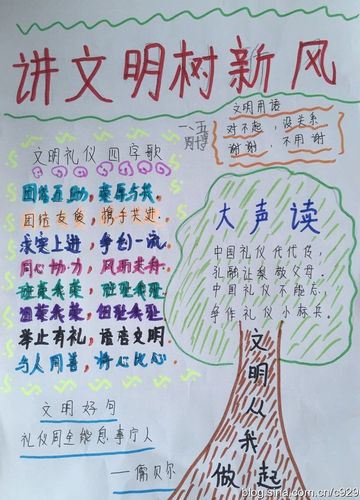 讲文明树新风
一、五
周博
文明用语
对不起,没关系
谢谢,不用谢
文明礼仪四字歌
团结互助,荣辱与共.
团结友爱,携手共进.
求实上进,争创一流
同心协力,风雨同舟
班荣我荣,班耻我耻
国荣我荣,国耻我耻.
举止有礼,语言文明
与人同善,将心比心.
大声读
中国礼仪代代传,
孔融让梨敬父母.
中国礼仪不能忘,
争作礼仪小标兵.
文明从我做起
文明好句
礼仪周全能息事宁人
——儒贝尔
blog.sina.com.cn/c929